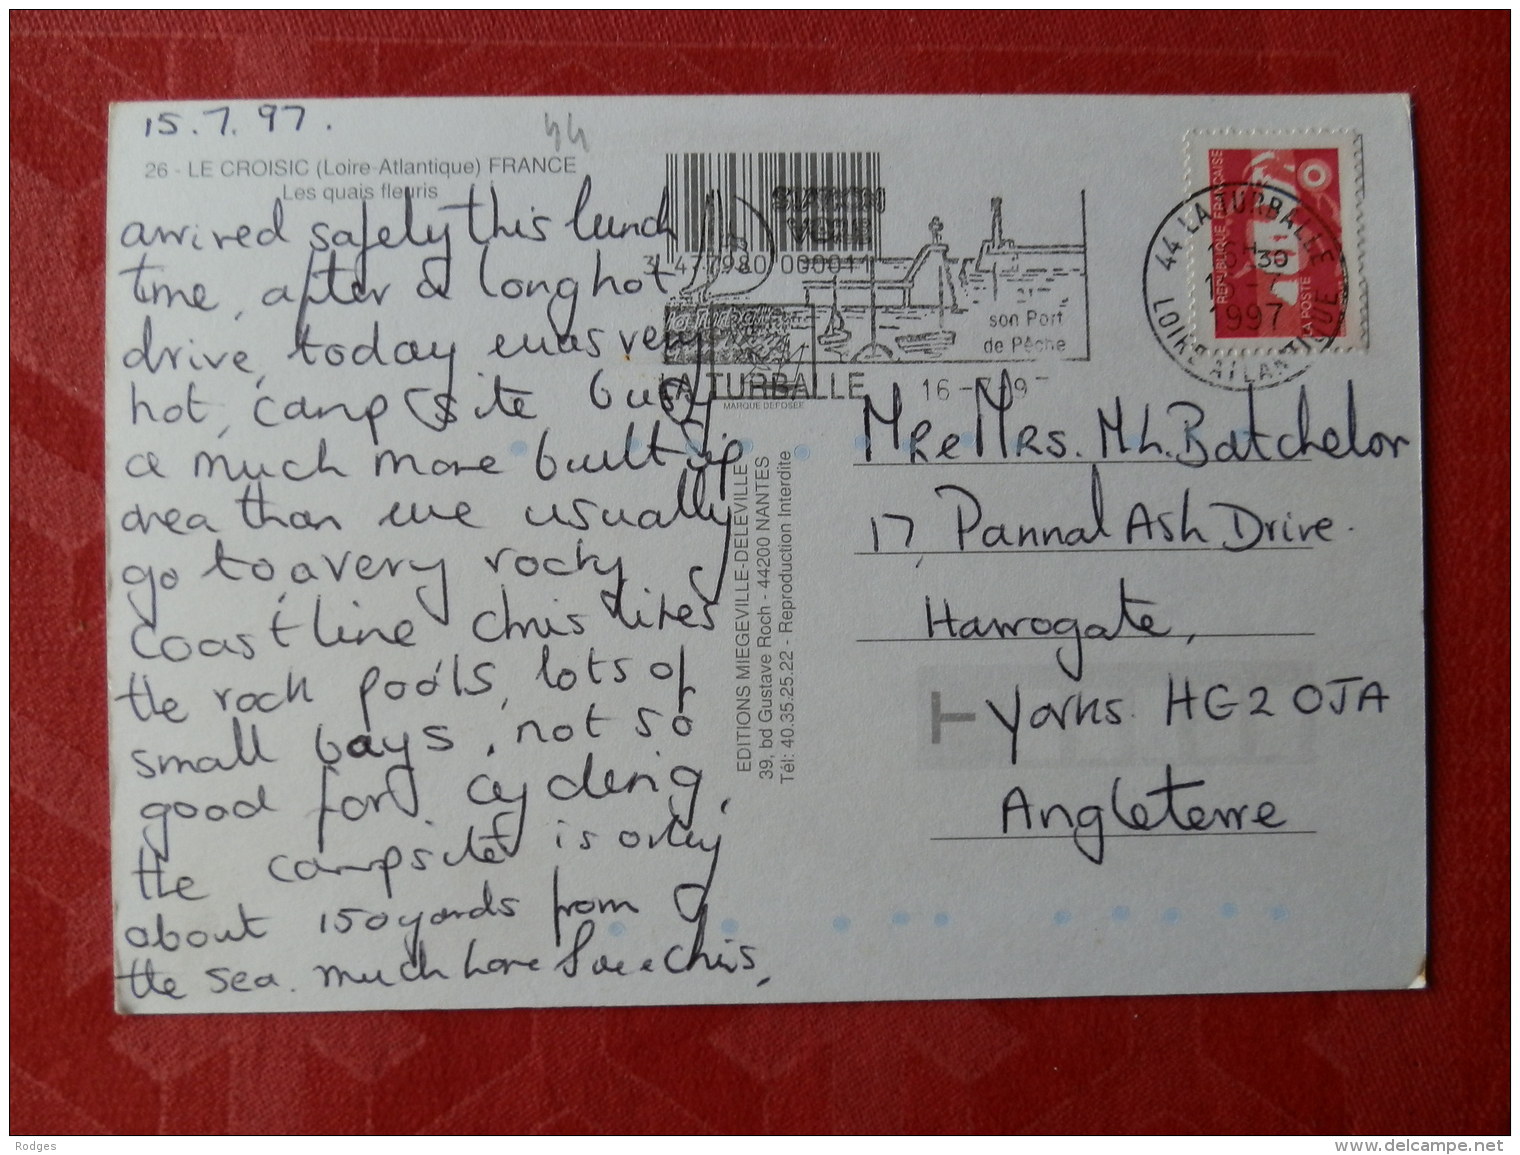 15.7.97.
44
26 - LE CROISIC (Loire-Atlantique) FRANCE
Les quais fleuris
arrived safely this lunch
time, after a long hot
drive, today was very
hot, campsite busy
a much more built up
area than we usually
go to, a very rocky
coastline Chris likes
the rock pools, lots of
small bays, not so
good for cycling,
the campsite is only
about 150 yards from
the sea. much love Sue & Chris.
3 477980 000011
STATION
VOILE
la Turballe
son Port
de Pêche
LA TURBALLE
MARQUE DEPOSEE
16 -
EDITIONS MIEGEVILLE-DELEVILLE
39, bd Gustave Roch - 44200 NANTES
Tél: 40.35.25.22 - Reproduction Interdite
REPUBLIQUE FRANCAISE
LA POSTE
44 LA TURBALLE
1997
LOIRE ATLANTIQUE
MR & MRS. M L. Batchelor
17, Pannal Ash Drive.
Harrogate,
Yorks. HG2 0JA
Angleterre
T
Rodges
www.delcampe.net